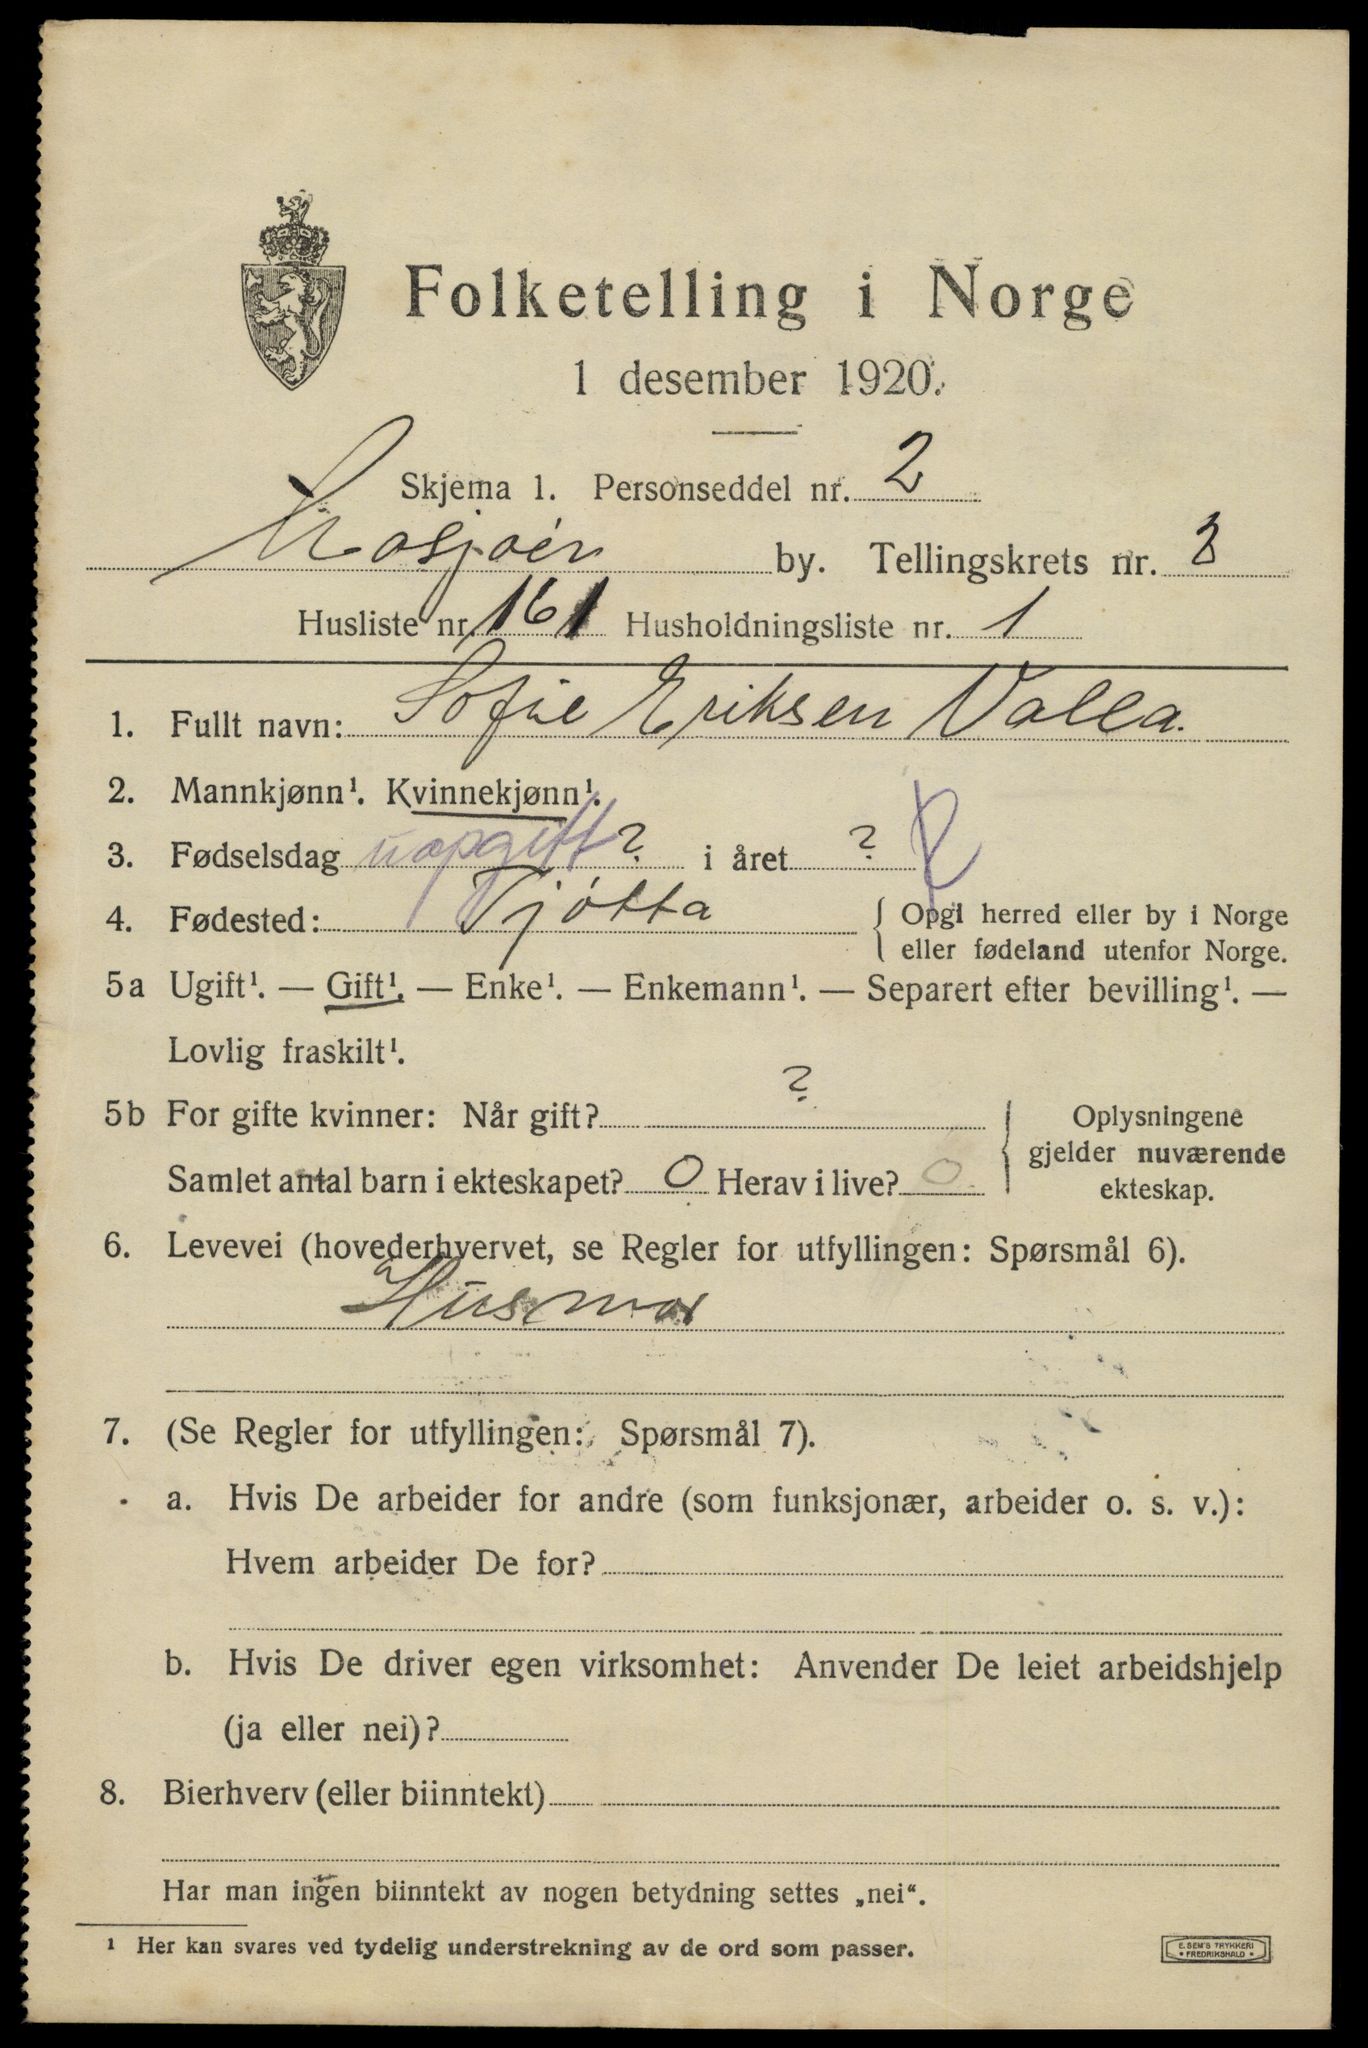 Folketelling i Norge
1 desember 1920.
Skjema 1. Personseddel nr. 2
Mosjøen by. Tellingskrets nr. 3
Husliste nr. 161 Husholdningsliste nr. 1
1. Fullt navn: Sofie Eriksen Valla.
2. Mannkjønn¹. Kvinnekjønn¹.
3. Fødselsdag uopgitt ? i året ?
4. Fødested: Tjøtta { Opgi herred eller by i Norge
eller fødeland utenfor Norge.
5a Ugift¹. — Gift¹. — Enke¹. — Enkemann¹. — Separert efter bevilling¹. —
Lovlig fraskilt¹.
5b For gifte kvinner: Når gift? ?
Samlet antal barn i ekteskapet? 0 Herav i live? 0
Oplysningene
gjelder nuværende
ekteskap.
6. Levevei (hovederhvervet, se Regler for utfyllingen: Spørsmål 6).
Husmor
7. (Se Regler for utfyllingen: Spørsmål 7).
a. Hvis De arbeider for andre (som funksjonær, arbeider o. s. v.):
Hvem arbeider De for?
b. Hvis De driver egen virksomhet: Anvender De leiet arbeidshjelp
(ja eller nei)?
8. Bierhverv (eller biinntekt)
Har man ingen biinntekt av nogen betydning settes „nei“.
¹ Her kan svares ved tydelig understrekning av de ord som passer.
E. SEM'S TRYKKERI
• FREDRIKSHALD •